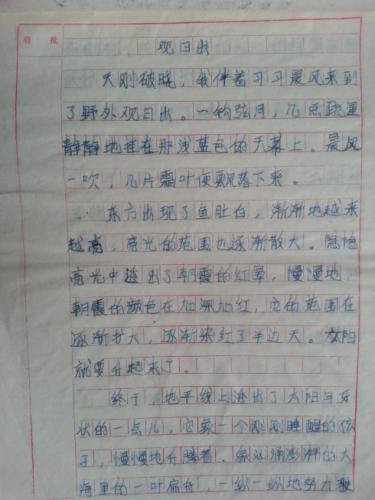 观日出
天刚破晓，我伴着习习晨风来到
了野外观日出。一钩弦月，几点疏星
静静地挂在那浅蓝色的天幕上、晨风
一吹，几片飘叶便飘落下来。
东方出现了鱼肚白，渐渐地越来
越高，亮光的范围也逐渐散大。隐隐
亮光中透出了朝霞的红晕，慢慢地
朝霞的颜色在加深加红，它的范围在
逐渐扩大，逐渐染红了半边天。太阳
就要升起来了。
终于，地平线上迸出了太阳
状的一点儿，它象一个刚刚睡醒的孩
子，慢慢地升腾着，象汹涌澎湃的大
海里的一叶扁舟，一纵一纵地努力